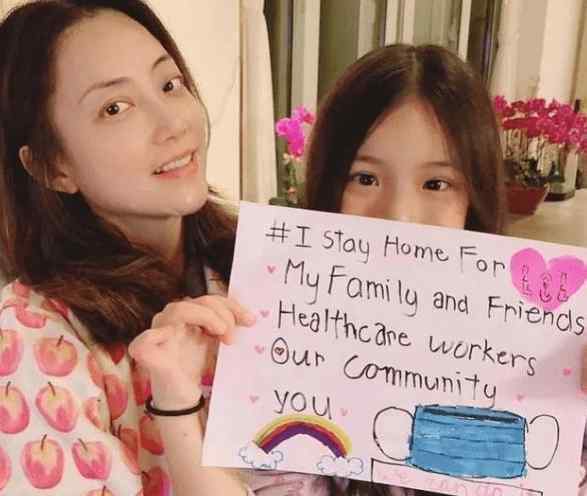 #I Stay Home For
My Family and Friends
Healthcare workers
Our Community
you